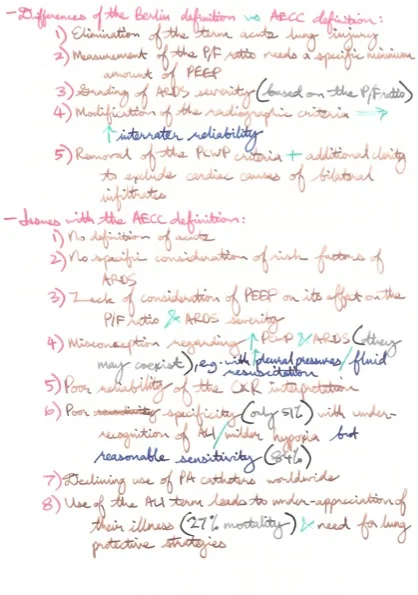 - Differences of the Berlin definition vs AECC definition:
1) Elimination of the term acute lung injury
2) Measurement of the P/F ratio needs a specific minimum
amount of PEEP
3) Grading of ARDS severity (based on the P/F ratio)
4) Modification of the radiographic criteria →
↑ interrater reliability
5) Removal of the PCWP criteria + additional clarity
to exclude cardiac causes of bilateral
infiltrates
- Issues with the AECC definition:
1) No definition of acute
2) No specific consideration of risk factors of
ARDS
3) Lack of consideration of PEEP on its effect on the
P/F ratio & ARDS severity
4) Misconception regarding ↑ PCWP & ARDS (they
may coexist), e.g. with pleural pressures/fluid
resuscitation
5) Poor reliability of the CXR interpretation
6) Poor specificity (only 51%) with under-
recognition of ALI/milder hypoxia but
reasonable sensitivity (84%)
7) Declining use of PA catheters worldwide
8) Use of the ALI term leads to under-appreciation of
their illness (27% mortality) & need for lung
protective strategies